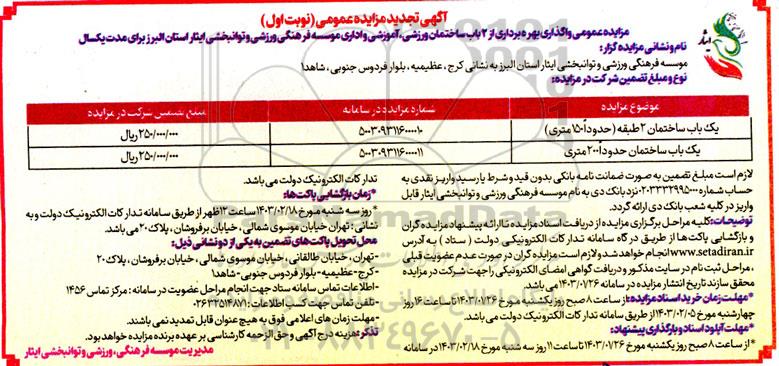 آگهی تجدید مزایده عمومی (نوبت اول)
مزایده عمومی واگذاری بهره برداری از ۲ باب ساختمان ورزشی، آموزشی و اداری موسسه فرهنگی ورزشی و توانبخشی ایثار استان البرز برای مدت یکسال
نام و نشانی مزایده گزار:
موسسه فرهنگی ورزشی و توانبخشی ایثار استان البرز به نشانی کرج، عظیمیه، بلوار فردوس جنوبی، شاهد۱
نوع و مبلغ تضمین شرکت در مزایده:
موضوع مزایده شماره مزایده در سامانه مبلغ تضمین شرکت در مزایده
یک باب ساختمان ۲ طبقه (حدوداً ۱۵۰ متری) ۵۰۰۳۰۹۳۱۱۶۰۰۰۰۱۰ ۲۵۰/۰۰۰/۰۰۰ ریال
یک باب ساختمان حدوداً ۲۰۰ متری ۵۰۰۳۰۹۳۱۱۶۰۰۰۰۱۱ ۲۵۰/۰۰۰/۰۰۰ ریال
لازم است مبلغ تضمین به صورت ضمانت نامه بانکی بدون قید و شرط یا رسید واریز نقدی به
حساب شماره ۲۰۳۳۳۲۹۹۵۰۰۰ نزد بانک دی به نام موسسه فرهنگی ورزشی و توانبخشی ایثار قابل
واریز در کلیه شعب بانک دی ارائه گردد.
توضیحات: کلیه مراحل برگزاری مزایده از دریافت اسناد مزایده تا ارائه پیشنهاد مزایده گران
و بازگشایی پاکت ها از طریق درگاه سامانه تدارکات الکترونیکی دولت (ستاد) به آدرس
www.setadiran.ir انجام خواهد شد و لازم است مزایده گران در صورت عدم عضویت قبلی
، مراحل ثبت نام در سایت مذکور و دریافت گواهی امضای الکترونیکی را جهت شرکت در مزایده
محقق سازند تاریخ انتشار مزایده در سامانه ۱۴۰۳/۰۱/۲۶ می باشد.
*مهلت زمان خرید اسناد مزایده: از ساعت ۸ صبح روز یکشنبه مورخ ۱۴۰۳/۰۱/۲۶ تا ساعت ۱۶ روز
چهارشنبه مورخ ۱۴۰۳/۰۲/۰۵ از طریق سامانه تدارکات الکترونیک دولت می باشد.
*مهلت آپلود اسناد و بارگذاری پیشنهاد:
*از ساعت ۸ صبح روز یکشنبه مورخ ۱۴۰۳/۰۱/۲۶ تا ساعت ۱۱ روز سه شنبه مورخ ۱۴۰۳/۰۲/۱۸ در سامانه
تدارکات الکترونیک دولت می باشد.
*زمان بازگشایی پاکت ها:
*روز سه شنبه مورخ ۱۴۰۳/۰۲/۱۸ ساعت ۱۲ ظهر از طریق سامانه تدارکات الکترونیک دولت و به
نشانی: تهران خیابان موسوی شمالی، خیابان برفروشان، پلاک ۲۰ می باشد.
محل تحویل پاکت های تضمین به یکی از دو نشانی ذیل:
-تهران، خیابان طالقانی، خیابان موسوی شمالی، خیابان برفروشان، پلاک ۲۰
-کرج-عظیمیه-بلوار فردوس جنوبی-شاهد۱
-اطلاعات تماس سامانه ستاد جهت انجام مراحل عضویت در سامانه: مرکز تماس ۱۴۵۶
-تلفن تماس جهت کسب اطلاعات: ۰۲۶۳۲۵۱۴۸۷۱
-مهلت زمان های اعلامی فوق به هیچ عنوان قابل تمدید نمی باشند.
تذکر: هزینه درج آگهی و حق الزحمه کارشناسی بر عهده برنده مزایده خواهد بود.
مدیریت موسسه فرهنگی، ورزشی و توانبخشی ایثار